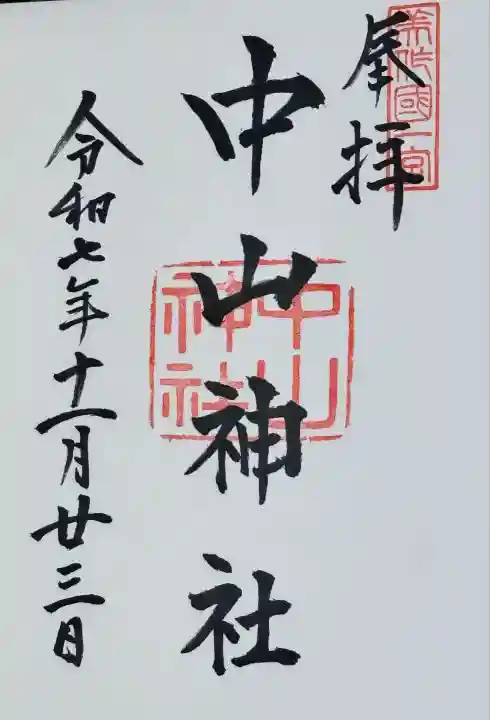 奉拝
美作國一宮
中山神社
中山神社
令和七年十一月廿三日